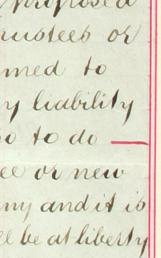 proposed
rustees or
med to
y liability
o to do
ee or new
ny and it is
ll be at liberty